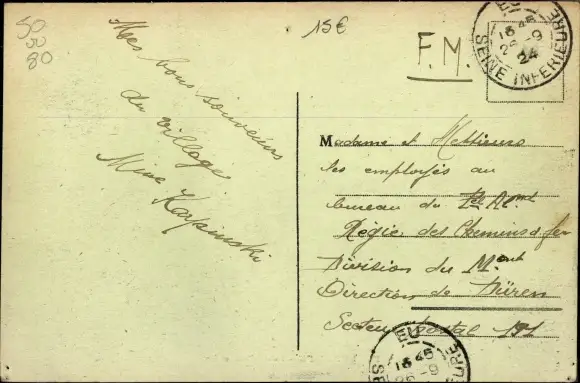 50
30
80
15€
F.M.
EU
18 45
26-9
24
SEINE INFERIEURE
Mes bons souvenirs
du village
Mme Karpinski
Madame et Messieurs
les employés au
bureau du
Régie des Chemins d fer
Division du Mont
Direction de Düren
Secteur Postal 191
EU
18 45
26-9